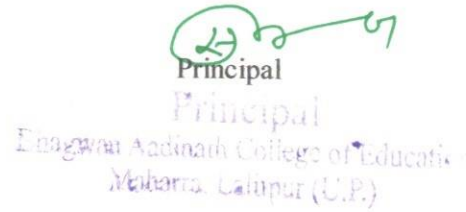 Principal
Principal
Bhagwan Aadinath College of Education
Maharra, Lalitpur (U.P.)